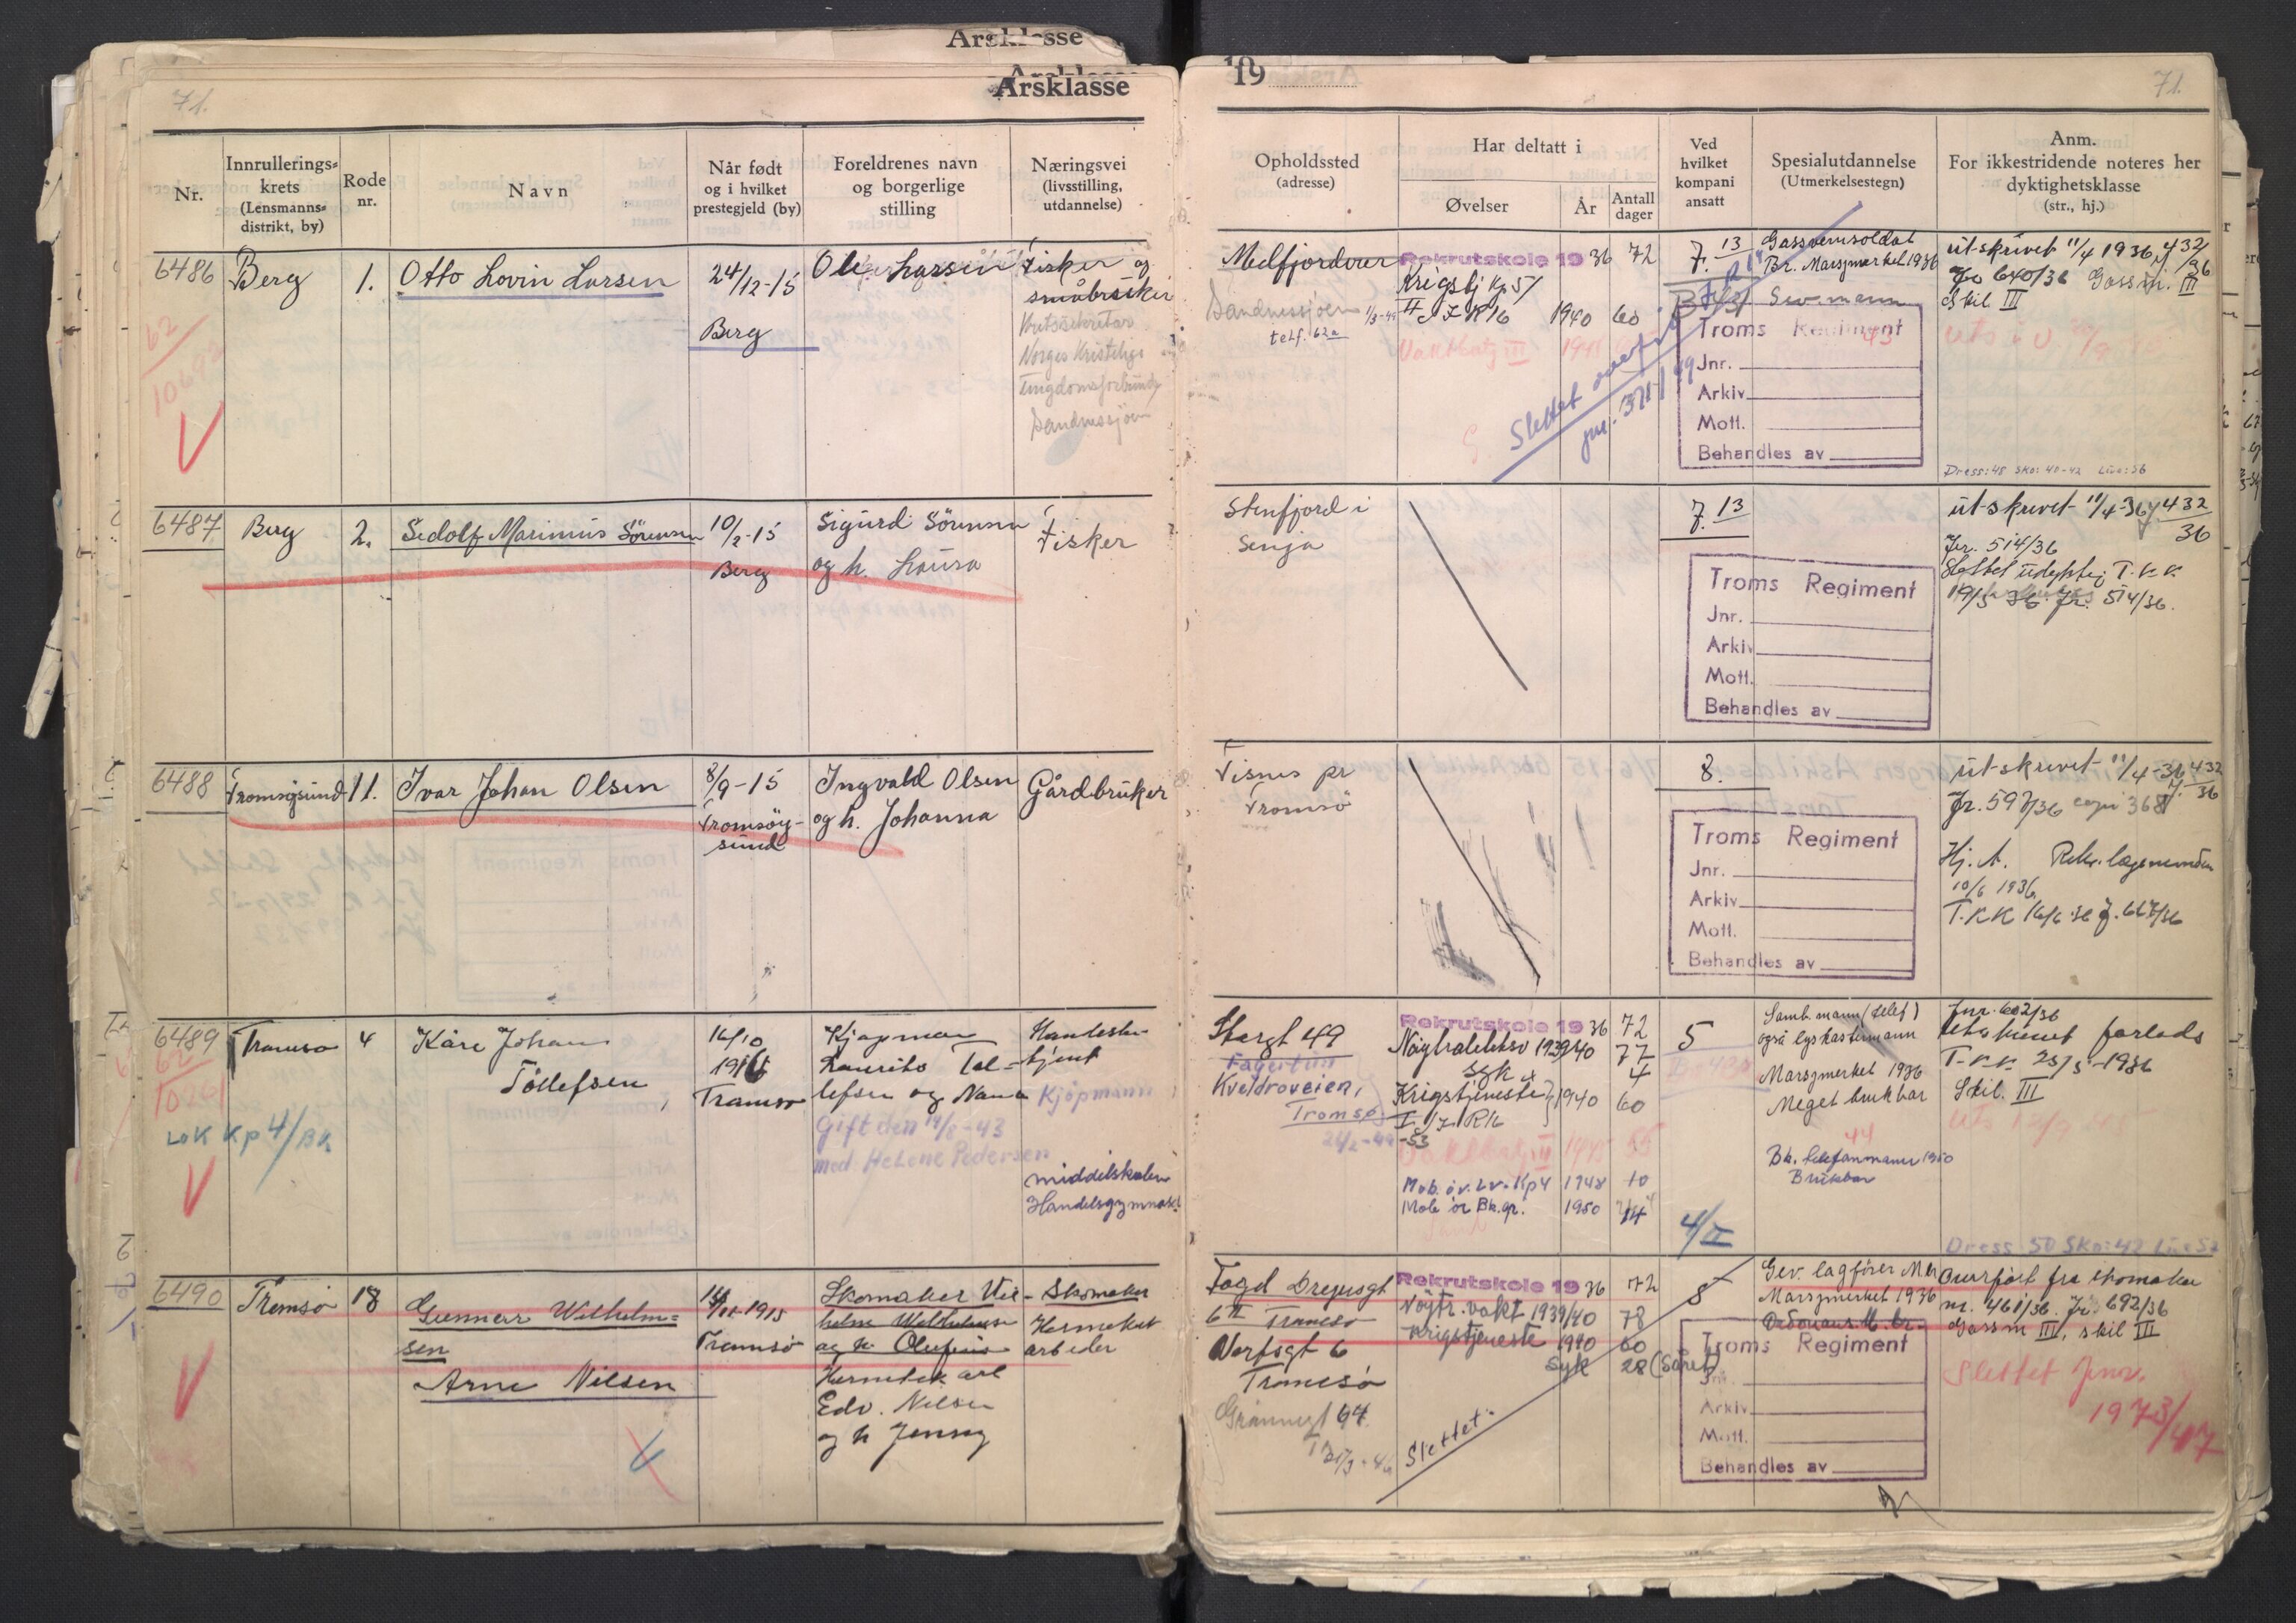 Årsklasse
Årsklasse
71.
Nr.
Innrullerings=
krets
(Lensmanns=
distrikt, by)
Rode
nr.
Navn
Når født
og i hvilket
prestegjeld (by)
Foreldrenes navn
og borgerlige
stilling
Næringsvei
(livsstilling,
utdannelse)
6486
Berg
1.
Otto Lovin Larsen
24/12-15
Berg
Ole Larsen
Fisker og
småbruker
Kretssekretær
Norges Kristelige
Ungdomsforbund
Sandnessjøen
62
6487
Berg
2.
Sedolf Marinius Sörensen
10/2-15
Berg
Sigurd Sörensen
og h. Laura
Fisker
6488
Tromsøysund
11.
Ivar Johan Olsen
8/9-15
Tromsöy-
sund
Ingvald Olsen
og h. Johanna
Gårdbruker
6489
62
Tromsø
4
Kåre Johan
Tollefsen
16/10
1916
Tromsø
Kjøpman
Laurits Tol=
lefsen og Nanna
Gift den 14/8-43
med Helene Pedersen
Handelsbe-
tjent
Kjöpmann
middelskolen
Handelsgymnas
Lok Kp 4/BK
6490
Tromsø
18
Gunnar Wilhelm=
sen
Arne Nilsen
11-1915
Tromsø
Skomaker Wil-
helm Wilhelmsen
og h. Olufine
Hermetikarb
Edv. Nilsen
og h Jenny
Skomaker
Hermetikk
arbeider
19
71.
Opholdssted
(adresse)
Har deltatt i
Øvelser
År
Antall
dager
Ved
hvilket
kompani
ansatt
Spesialutdannelse
(Utmerkelsestegn)
Anm.
For ikkestridende noteres her
dyktighetsklasse
(str., hj.)
Mefjordvær
Sandnessjøen 1/3-49
telf. 62a
Rekrutskole 19 36 72
Krigstj Kp 5/
II / I R 16 1940 60
Vaktbatj III 1945
7. 13
Gassvernsoldat
Br. Marsjmerket 1936
Troms Regiment
Jnr.
Arkiv
Mott.
Behandles av
Slettet overf
jnr. 371/49
utskrevet 11/4 1936, 432/36
Jo 640/36 Gassm. III
Skil III
Dress: 48 Sko: 40-42 Lue: 56
Stenfjord i
Senja
7. 13
Troms Regiment
Jnr.
Arkiv
Mott.
Behandles av
utskrevet 11/4-36 432
36
Jnr. 514/36
Slettet udyktig T.K.K.
19/5 36 Jr. 514/36.
Tisnes pr
Tromsö
8.
Troms Regiment
Jnr.
Arkiv
Mott.
Behandles av
utskrevet 11/4-36 432
36
Jr. 597/36 copi 368
Hj. A. Rekr. lægenemnden
10/6 1936
T.KK 16/6 36 J. 667/36
Storgt 49
Fagertun
Kveldroveien,
Tromsø
Rekrutskole 19 36 72
Nöytralitetsv 1939/40 77
Syk 4
Krigstjeneste 1940 60
I / I. R16
-53
Vaktbatj III 1945 55
Mob. öv. Lv. Kp 4 1948 10
Mob öv Bk.gr. 1950 14
5
4/II
Samb.mann (telef)
også lyskastermann
Marsjmerket 1936
Meget brukbar
44
Bk. telefonmann 1950
Brukbar
Jnr. 602/36
utskrevet forlods
T.K.K. 25/5-1936
Skil. III
Dress 50 Sko: 42 Lue 52
Fogd Dreyersgt
6 II Tromsø
Verftsgt 6
Tromsø
Grønnegt 64
Rekrutskole 19 36 72
Nöytr. vakt 1939/40 78
Krigstjeneste 1940 60
Syk 28 (Såret)
Slettet.
8
Gev. lagfører
Marsjmerket 1936
Troms Regiment
Jnr.
Arkiv
Mott.
Behandles av
Overført fra skomaker
nr. 461/36. Jr 692/36
Gassm III, skil III
Slettet Jnr.
1973/47